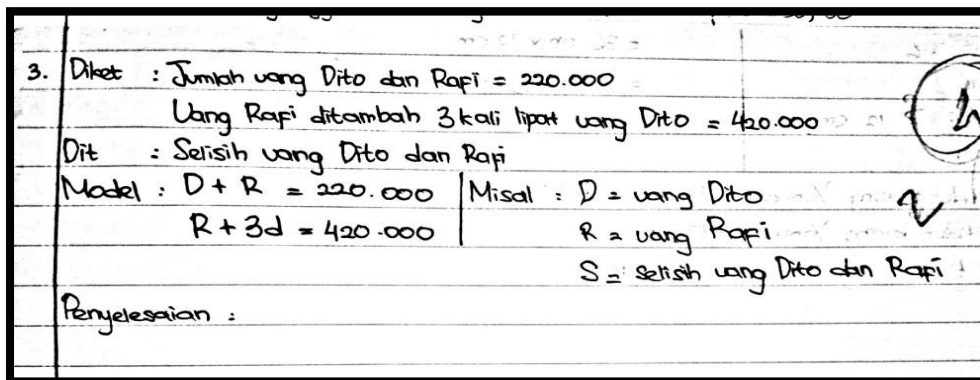 3. Diket : Jumlah uang Dito dan Rafi = 220.000
Uang Rafi ditambah 3 kali lipat uang Dito = 420.000
Dit : Selisih uang Dito dan Rafi
Model : D + R = 220.000 | Misal : D = uang Dito
R + 3d = 420.000 R = uang Rafi
S = Selisih uang Dito dan Rafi
Penyelesaian :